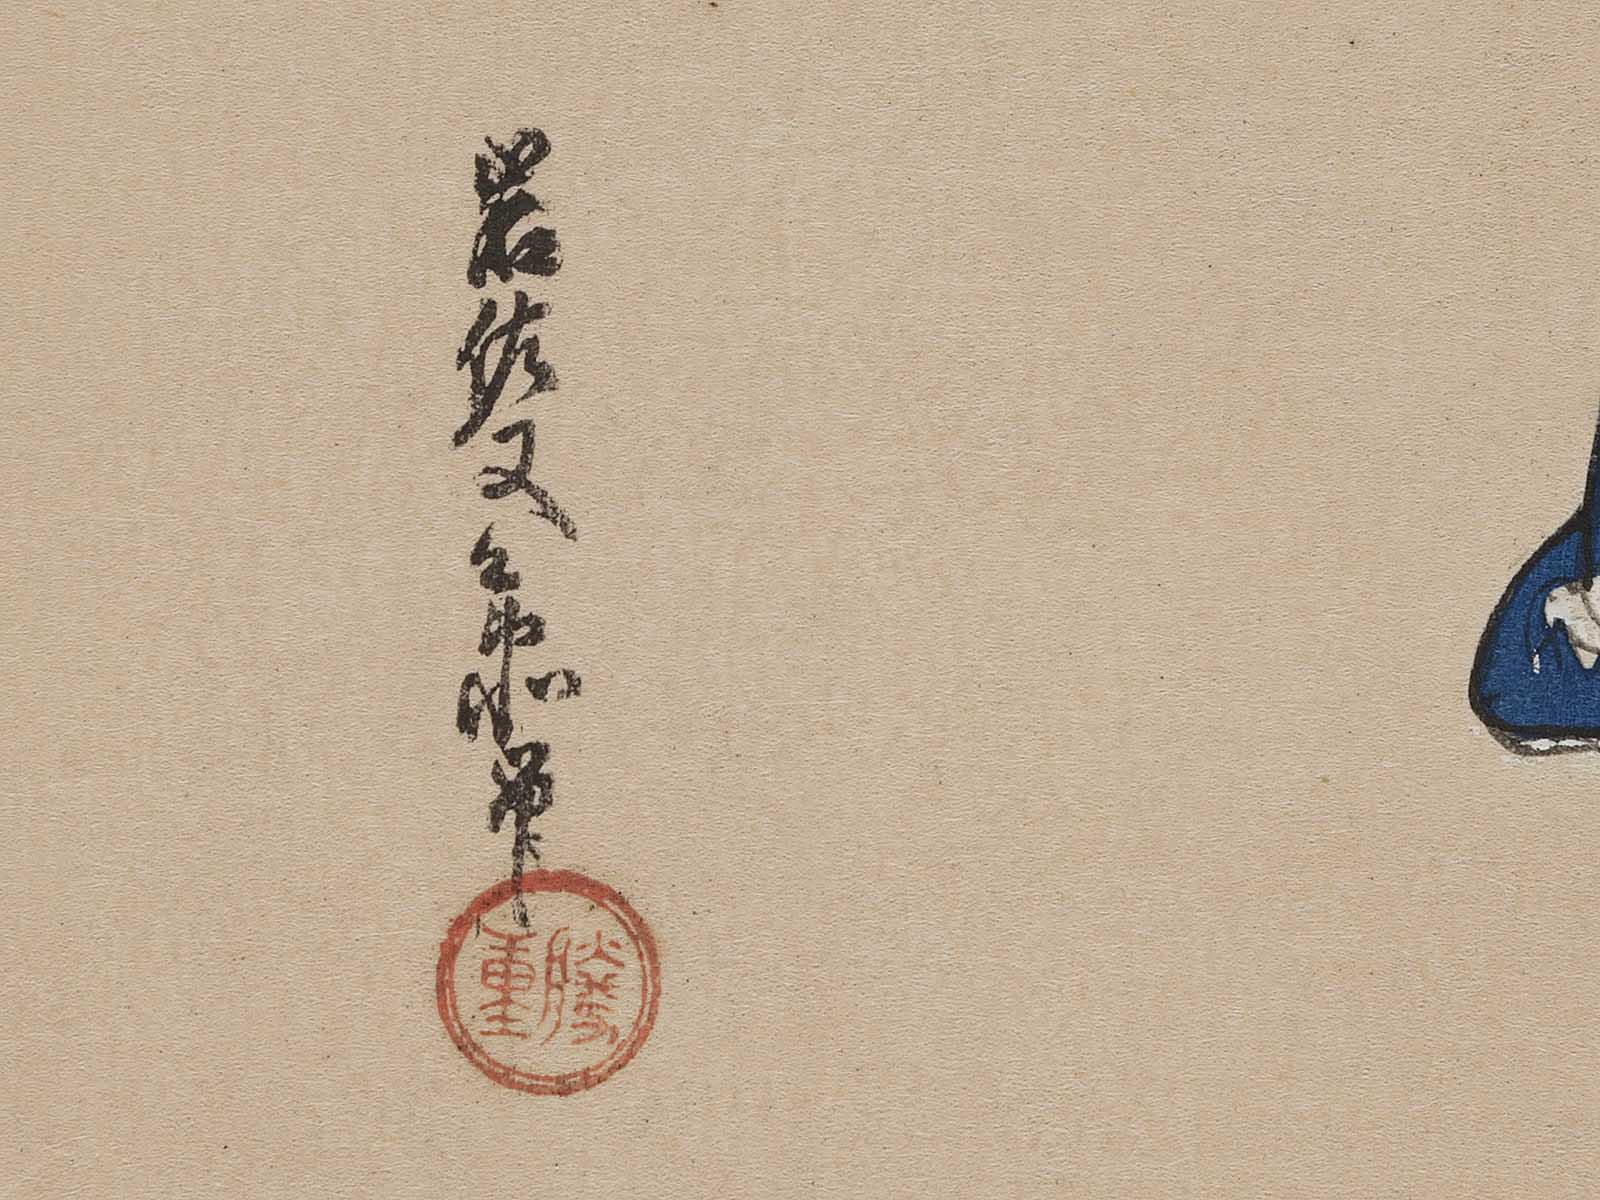 岩佐又兵衛筆
勝重